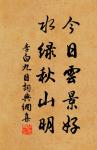 今日雲景好
水绿秋山明
李白九日詞典網集